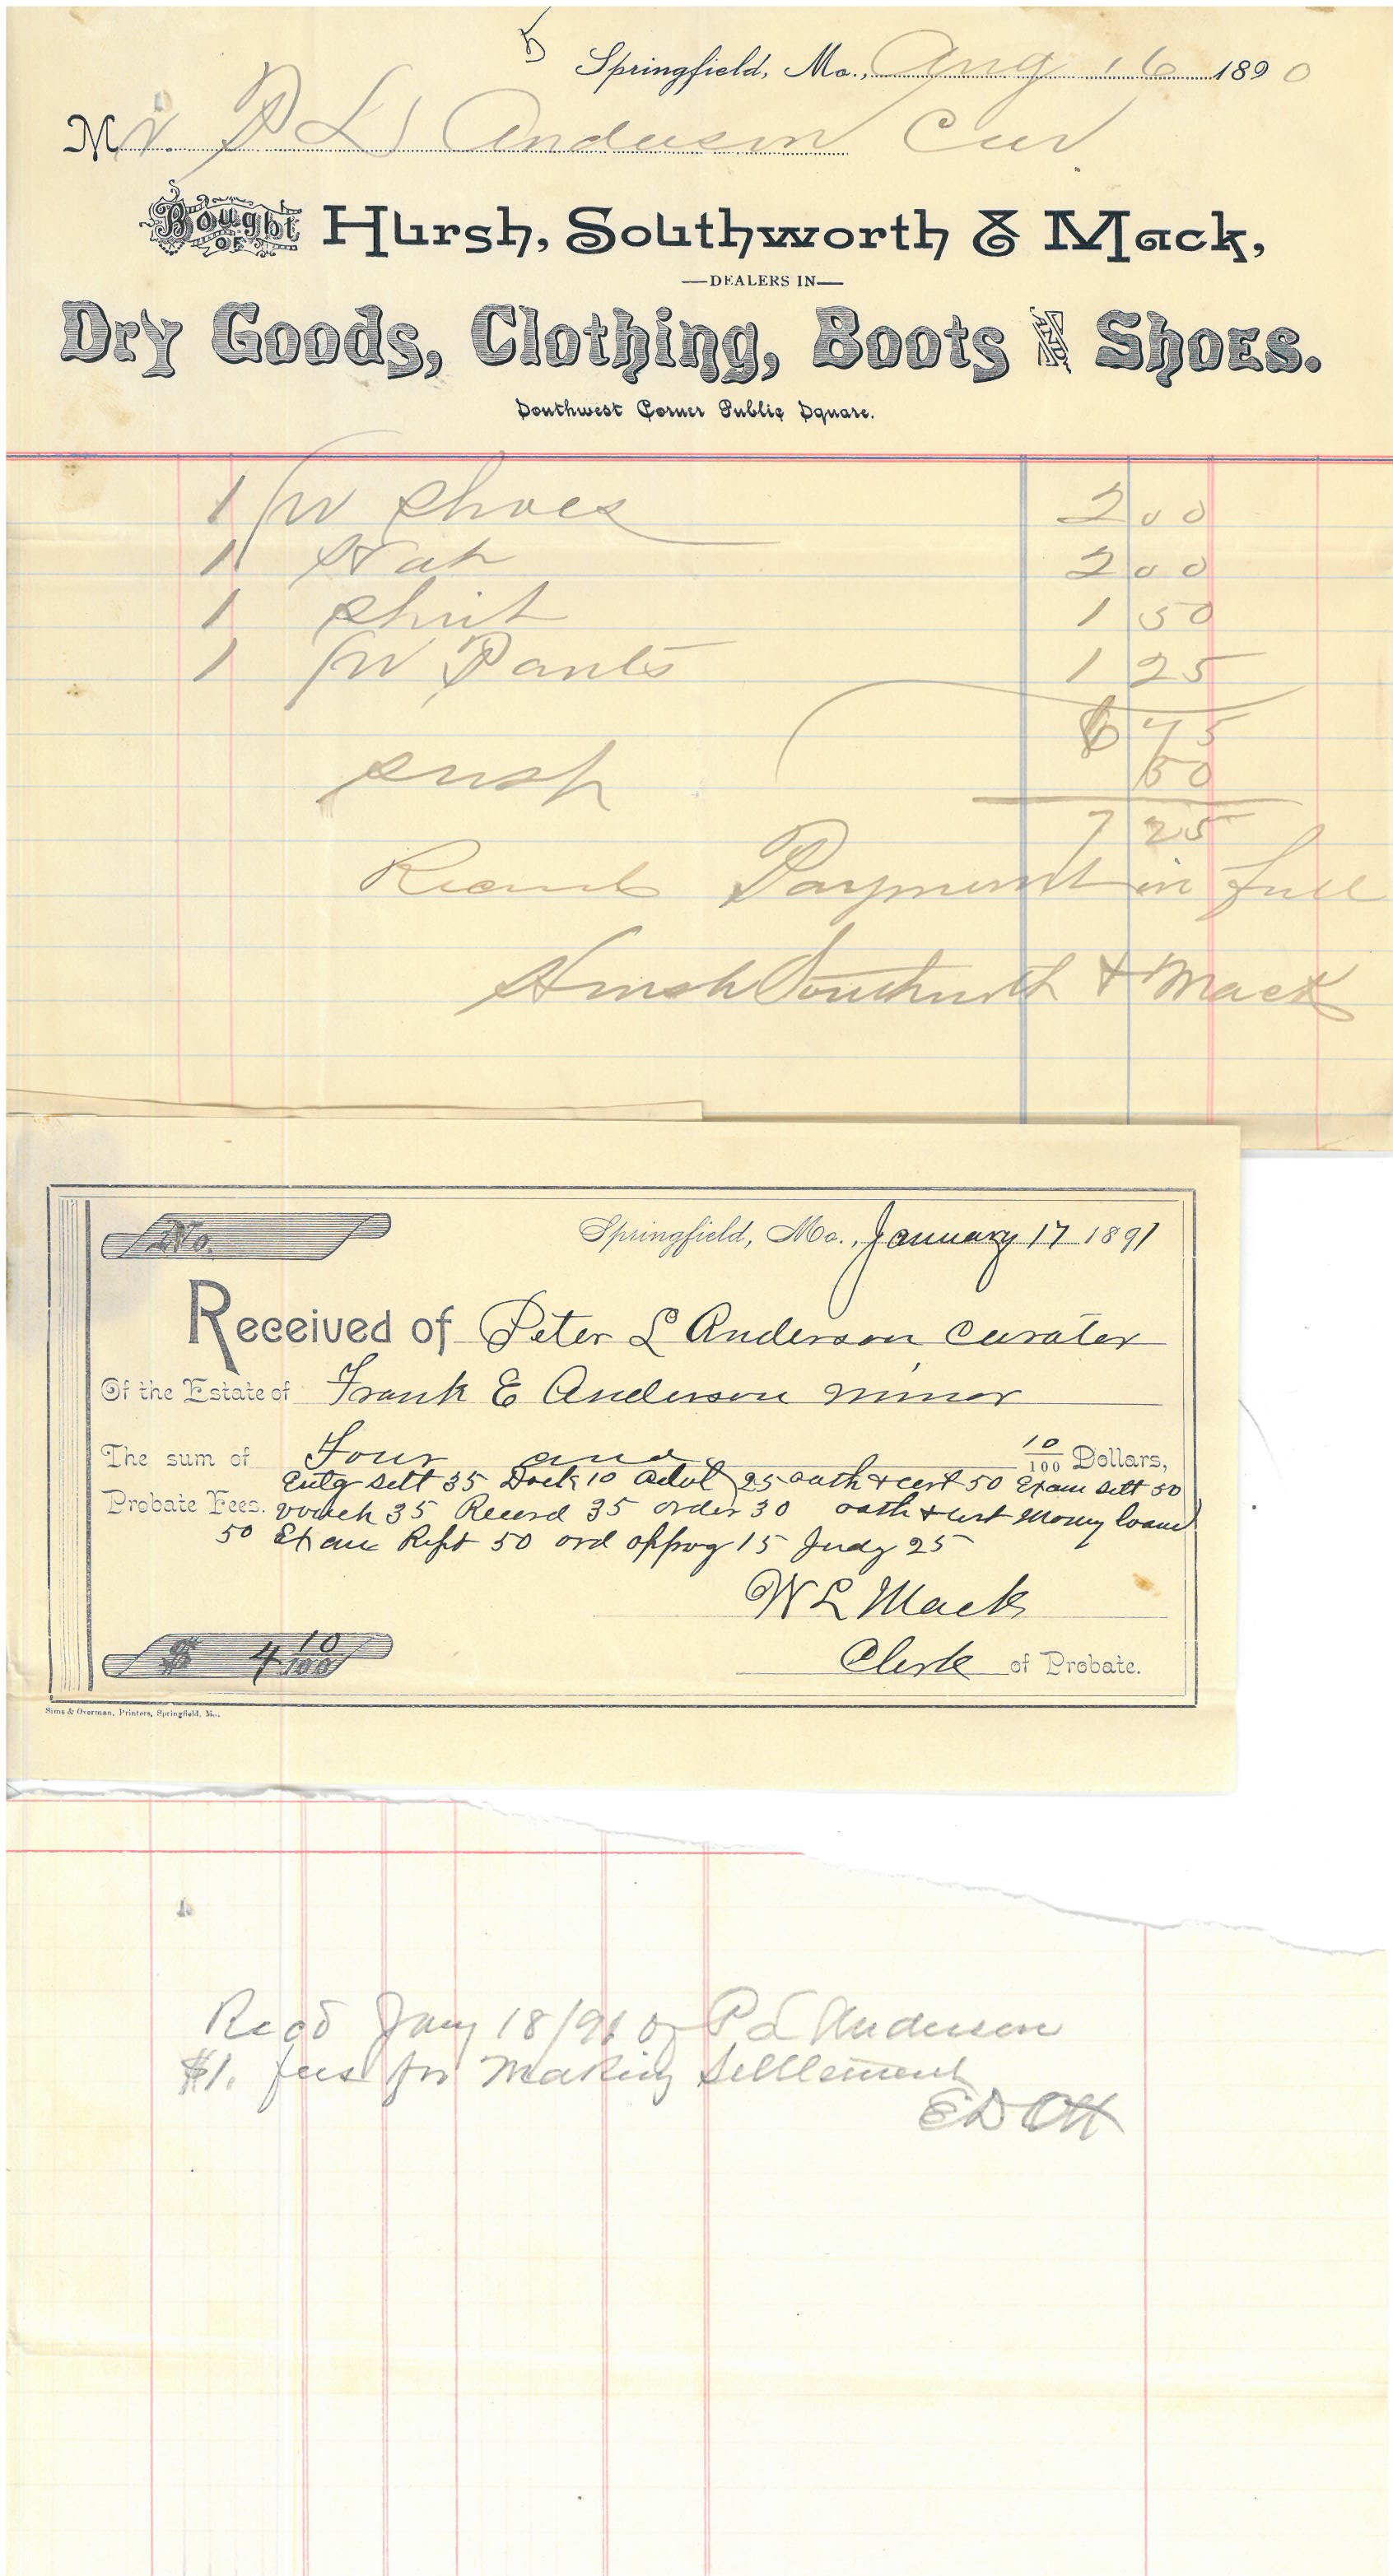 Springfield, Mo., Aug 16 1890
Mr. P L Anderson Cur
Bought OF Hursh, Southworth & Mack,
—DEALERS IN—
Dry Goods, Clothing, Boots AND Shoes.
Southwest Corner Public Square.
1 pr Shoes 2 00
1 Hat 2 00
1 Shirt 1 50
1 pr Pants 1 25
6 75
Susp 50
7 25
Payment in full
Hursh Southworth & Mack
No.
Springfield, Mo., January 17 1891
Received of Peter L Anderson Curator
Of the Estate of Frank E Anderson minor
The sum of Four and 10/100 Dollars,
Entg Sett 35 Dock 10 Advt 25 oath & cert 50 Exam Sett 50
Probate Fees. vouch 35 Record 35 order 30 oath & cert Money loand
50 Exam Rept 50 ord apprvg 15 Judg 25
W L Mack
$ 4 10/100
Clerk of Probate.
Sims & Overman, Printers, Springfield, Mo.
Recd Jany 18/91 of P L Anderson
$1. fees for Making Settlement
E D Ott